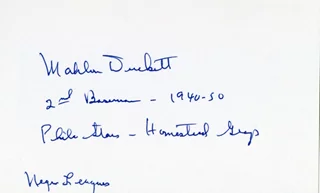 Mahlon Duckett
2nd Baseman - 1940-50
Phila Stars - Homestead Grays
Negro Leagues